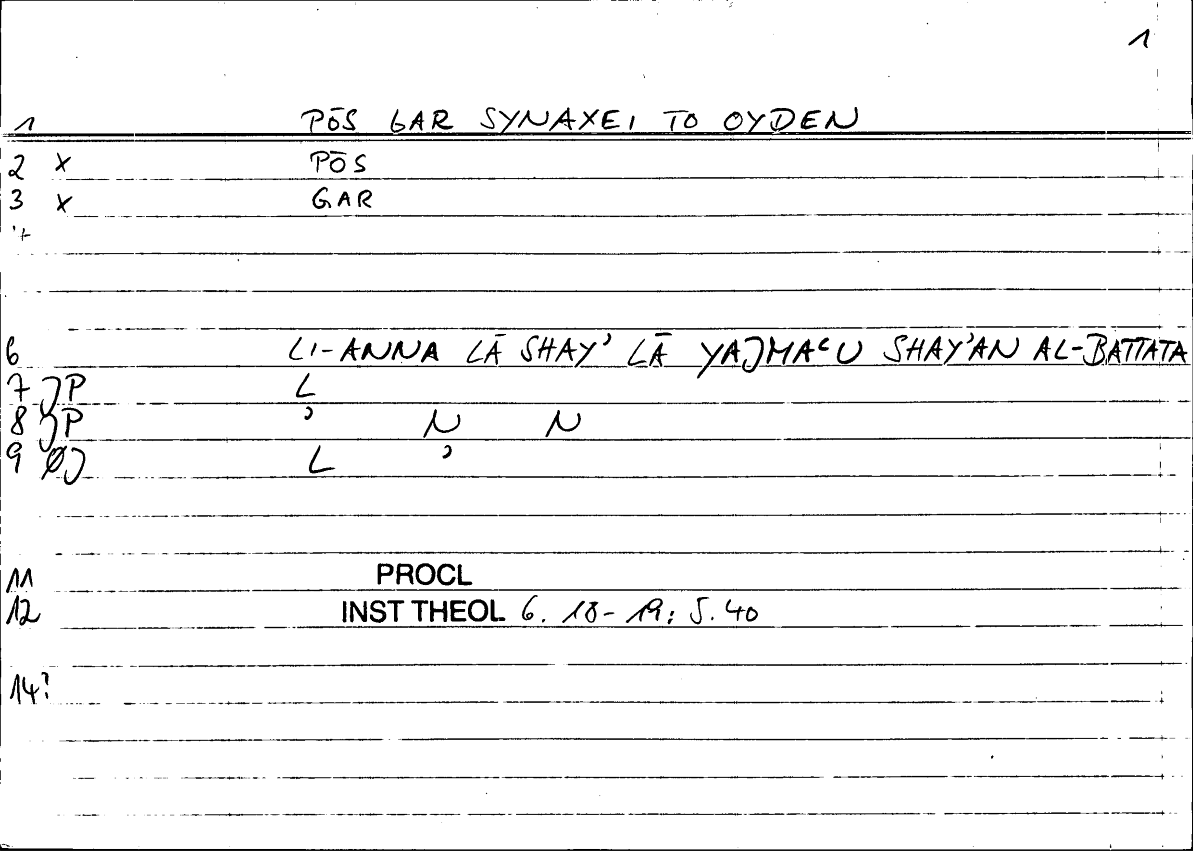 1
1 PŌS GAR SYNAXEI TO OYDEN
2 x PŌS
3 x GAR
6 LI-ANNA LĀ SHAY’ LĀ YAJMAʿU SHAY’AN AL-BATTATA
7 JP L
8 JP ’ N N
9 ØJ L ’
11 PROCL
12 INST THEOL 6. 18-19; 5. 40
14?